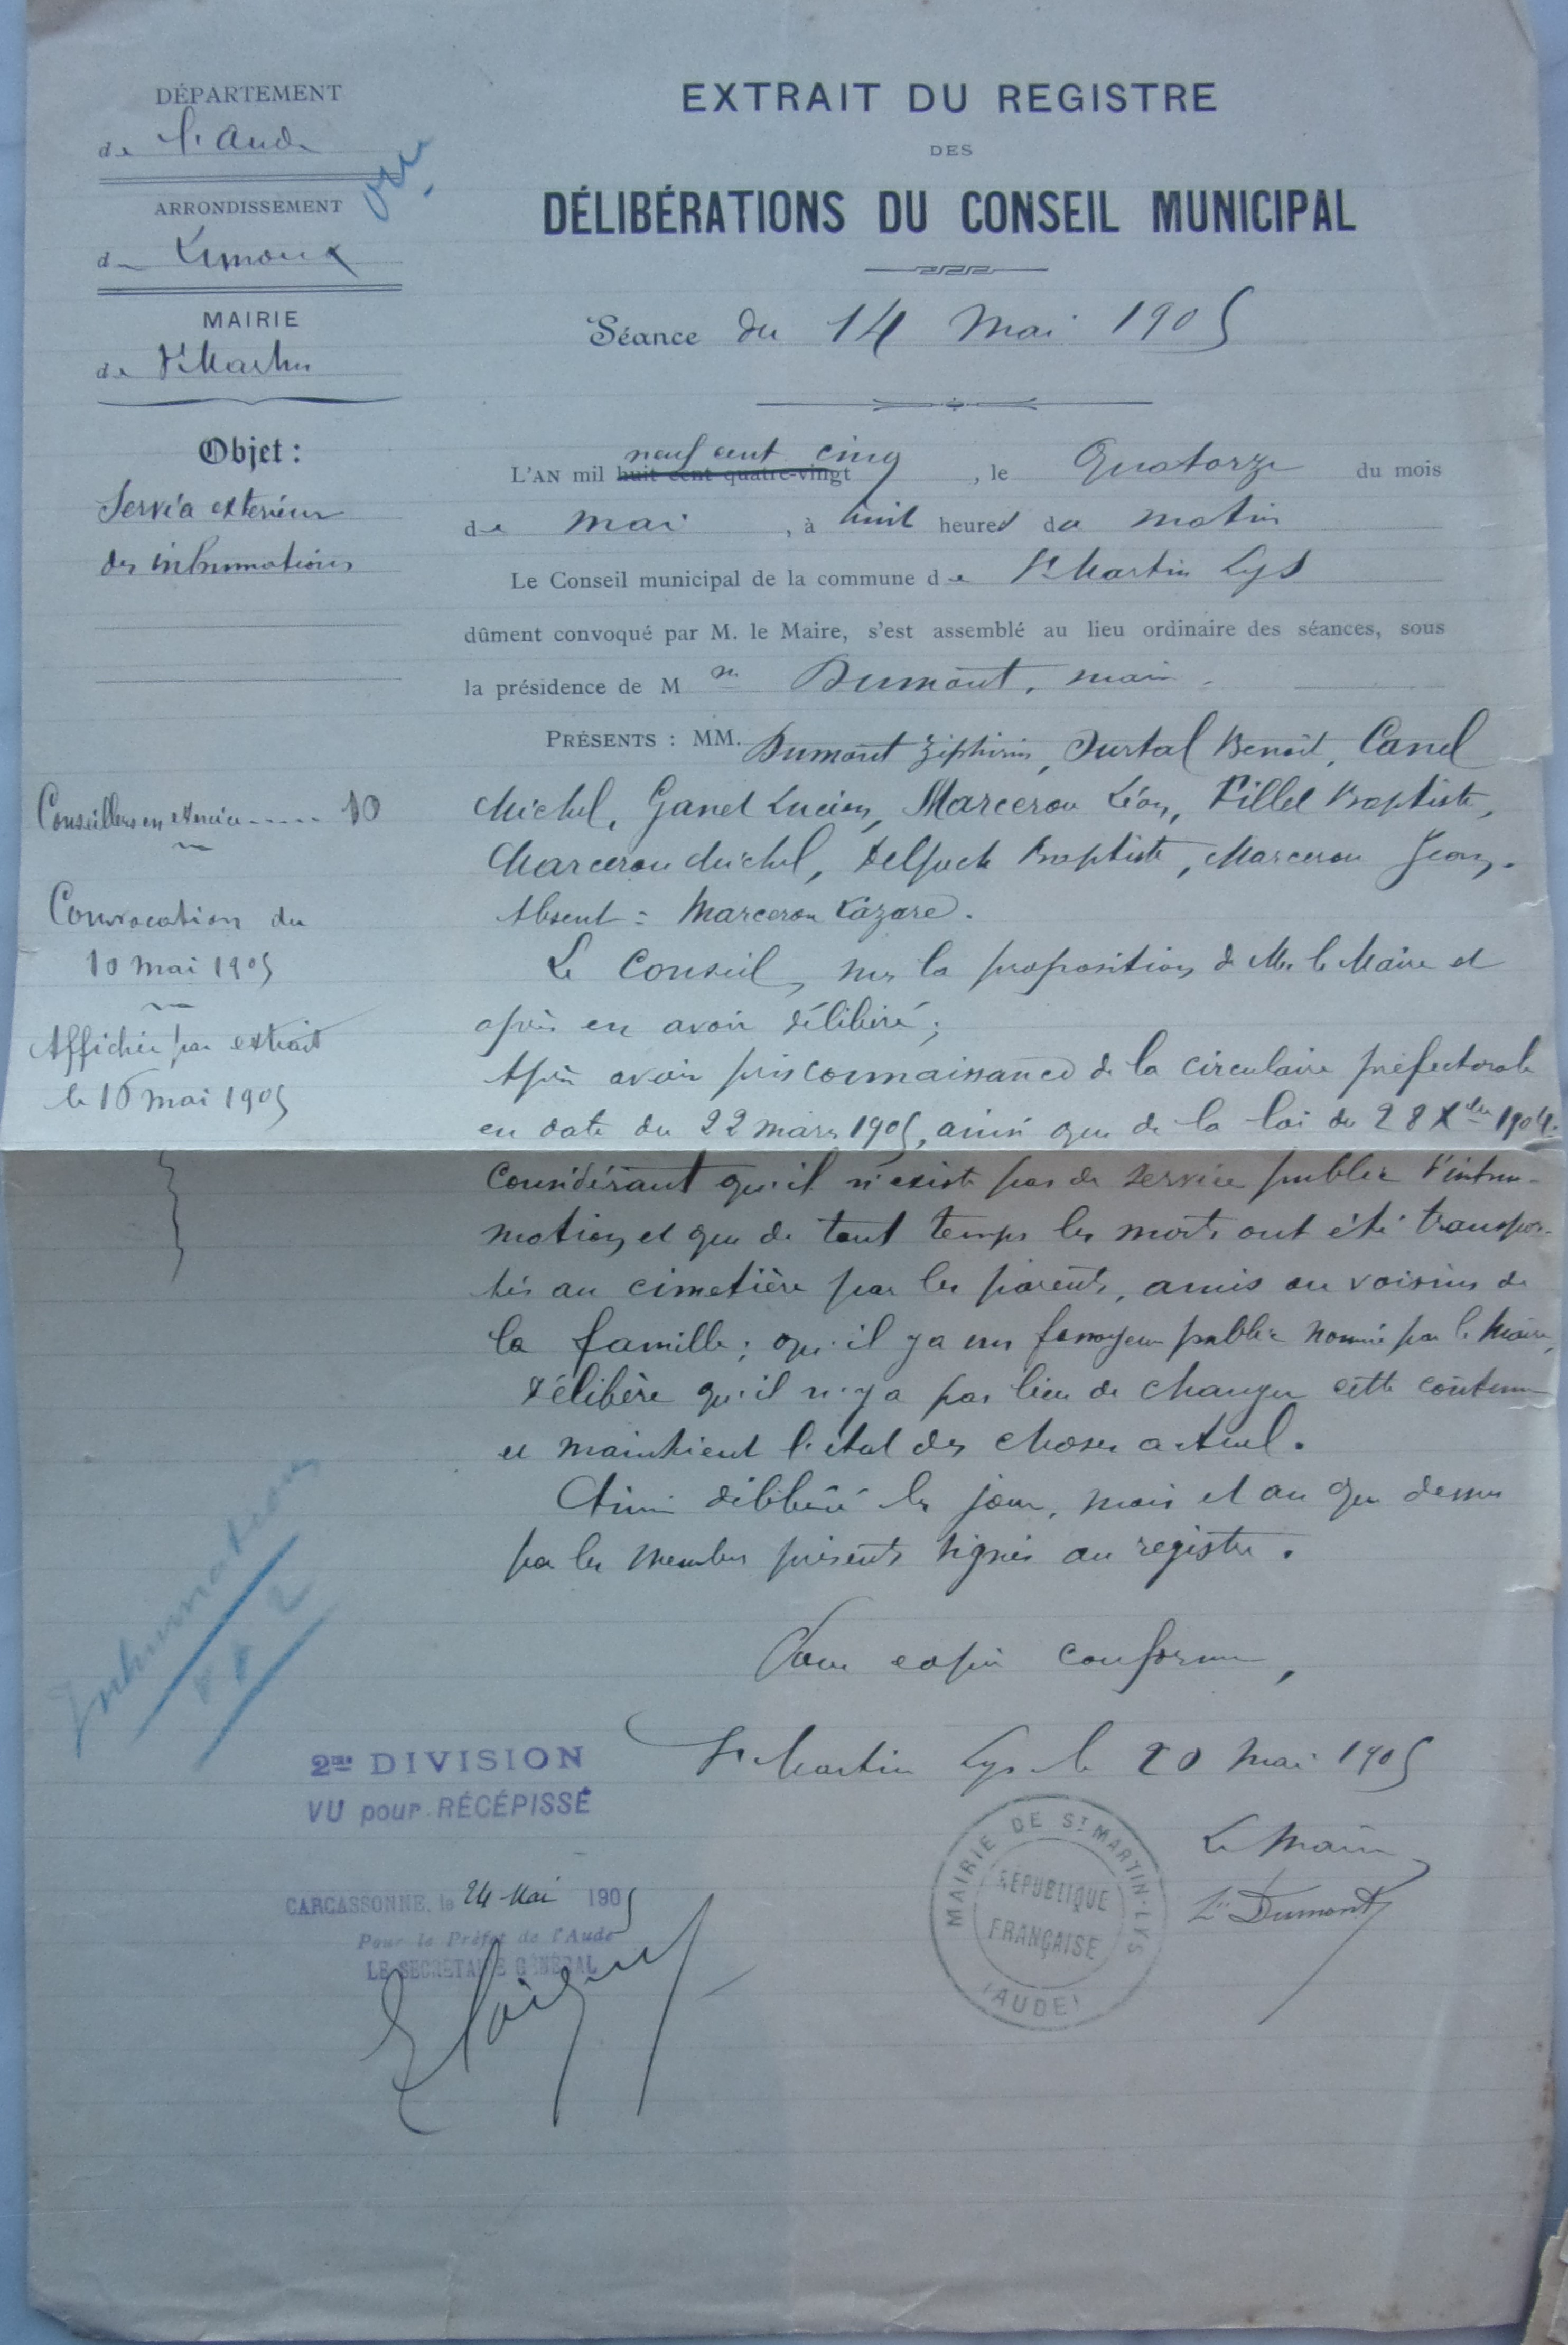 DÉPARTEMENT
de l'Aude
ARRONDISSEMENT
de Limoux
MAIRIE
de St Martin
Objet :
Service extérieur
des inhumations
Conseillers en exercice ..... 10
Convocation du
10 mai 1905
Affichée par extrait
le 16 mai 1905
EXTRAIT DU REGISTRE
DES
DÉLIBÉRATIONS DU CONSEIL MUNICIPAL
Séance du 14 Mai 1905
neuf cent cinq
L'AN mil huit cent quatre-vingt , le Quatorze du mois
de mai , à huit heures du matin
Le Conseil municipal de la commune de St Martin Lys
dûment convoqué par M. le Maire, s'est assemblé au lieu ordinaire des séances, sous
la présidence de M r Dumont, maire
PRÉSENTS : MM. Dumont Ziphirin, Durtal Benoit, Canel
Michel, Ganet Lucien, Marcerou Léon, Pillet Baptiste,
Marcerou Michel, Delpech Baptiste, Marcerou Jean.
Absent = Marcerou Lazare.
Le Conseil, sur la proposition de Mr le Maire et
après en avoir délibéré ;
Après avoir pris connaissance de la circulaire préfectorale
en date du 22 mars 1905, ainsi que de la loi du 28 Xbre 1904.
Considérant qu'il n'existe pas de service public d'inhu-
mation et que de tout temps les morts ont été transpor-
tés au cimetière par les parents, amis ou voisins de
la famille ; qu'il y a un fossoyeur public nommé par le Maire,
Délibère qu'il n'y a pas lieu de changer cette coutume
et maintient l'état des choses actuel.
Ainsi délibéré les jour, mois et an que dessus
par les membres présents signés au registre.
Pour copie conforme,
St Martin Lys le 20 Mai 1905
Le Maire
Zin Dumont
MAIRIE DE ST MARTIN-LYS
RÉPUBLIQUE
FRANÇAISE
(AUDE)
Inhumations
2me DIVISION
VU pour RÉCÉPISSÉ
CARCASSONNE, le 24 Mai 1905
Pour le Préfet de l'Aude
LE SECRÉTAIRE GÉNÉRAL